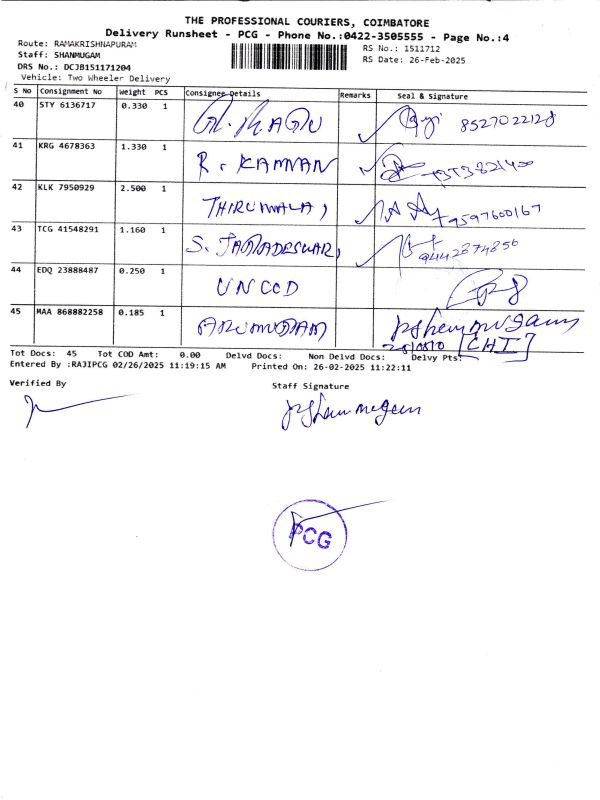 THE PROFESSIONAL COURIERS, COIMBATORE
Delivery Runsheet - PCG - Phone No.:0422-3505555 - Page No.:4
Route: RAMAKRISHNAPURAM
Staff: SHANMUGAM
DRS No.: DCJB151171204
Vehicle: Two Wheeler Delivery
RS No.: 1511712
RS Date: 26-Feb-2025
S No Consignment No Weight PCS Consignee Details Remarks Seal & Signature
40 STY 6136717 0.330 1 RAGU 8527022128
41 KRG 4678363 1.330 1 R. KANNAN
42 KLK 7950929 2.500 1 THIRUMALA, 9597600167
43 TCG 41548291 1.160 1 S. JAGADESWARI, 9442874856
44 EDQ 23888487 0.250 1
45 MAA 868882258 0.185 1 ARUMUGAM
[CHI]
Tot Docs: 45 Tot COD Amt: 0.00 Delvd Docs: Non Delvd Docs: Delvy Pts:
Entered By :RAJIPCG 02/26/2025 11:19:15 AM Printed On: 26-02-2025 11:22:11
Verified By Staff Signature
PCG